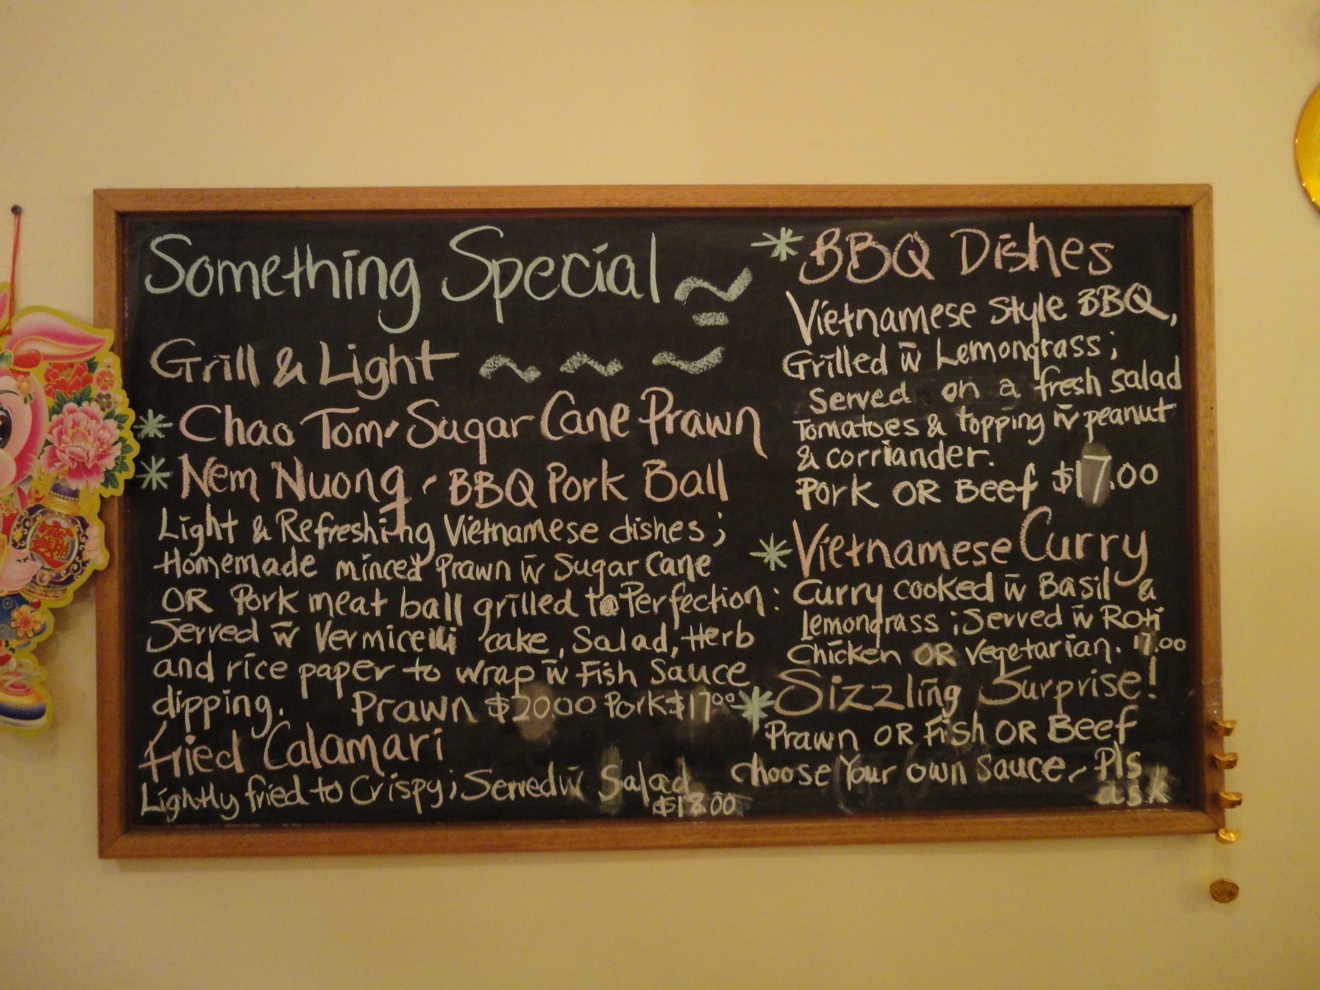 Something Special ~
Grill & Light ~ ~ ~
* Chao Tom, Sugar Cane Prawn
* Nem Nuong, BBQ Pork Ball
Light & Refreshing Vietnamese dishes;
Homemade minced Prawn w̄ Sugar Cane
OR Pork meat ball grilled to Perfection:
Served w̄ Vermicelli cake, Salad, Herb
and rice paper to wrap w̄ Fish Sauce
dipping. Prawn $20.00 Pork $17.00
Fried Calamari
Lightly fried to Crispy; Served w̄ Salad
$18.00
* BBQ Dishes
Vietnamese Style BBQ,
Grilled w̄ Lemongrass;
Served on a fresh salad
Tomatoes & topping w̄ peanut
& corriander.
Pork OR Beef $17.00
* Vietnamese Curry
Curry cooked w̄ Basil &
Lemongrass; Served w̄ Roti
Chicken OR Vegetarian. 17.00
* Sizzling Surprise!
Prawn OR Fish OR Beef
choose Your own Sauce, Pls
ask